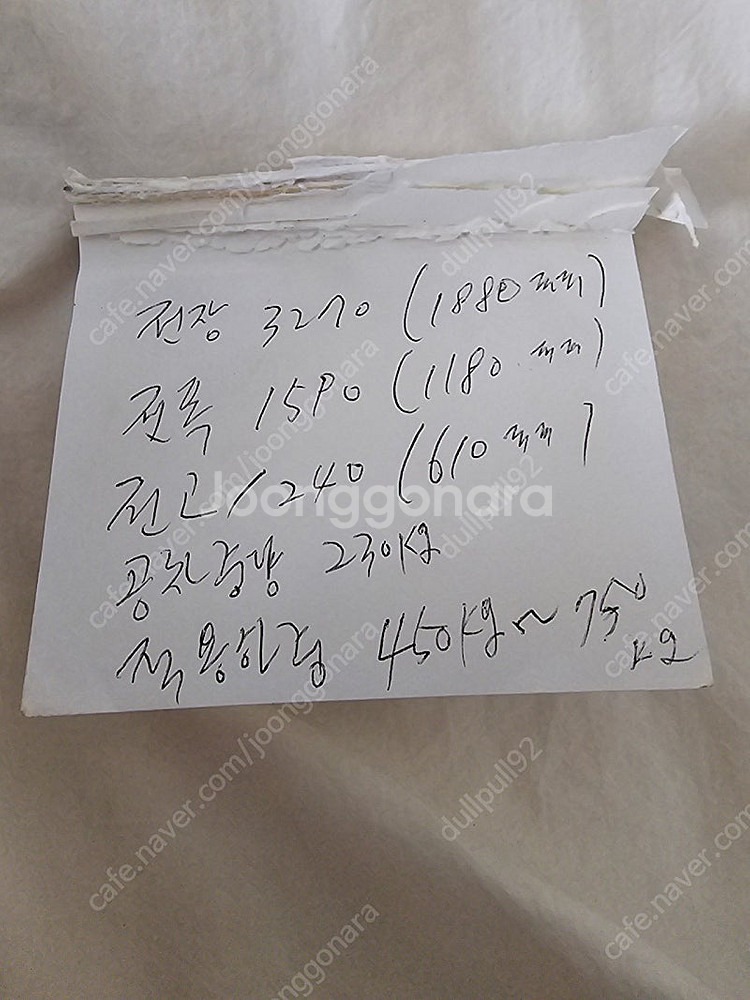 전장 3270 (1880mm)
전폭 1590 (1180mm)
전고 1240 (610mm)
공차중량 230kg
적용하중 450kg~750
kg
Joonggonara
cafe.naver.com/joonggonara
dullpull92